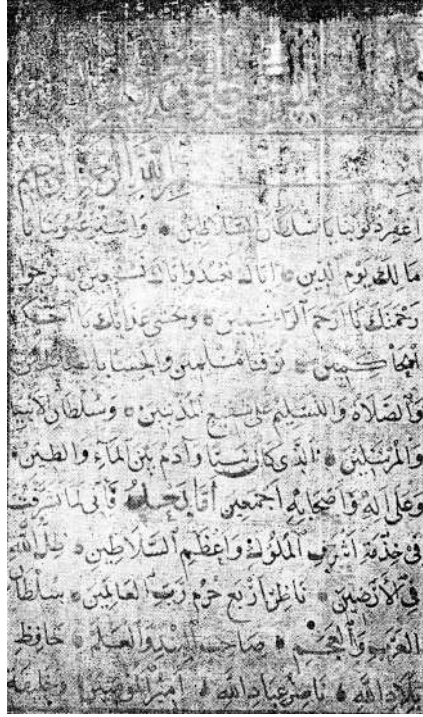 بسم الله الرحمن الرحيم
اغفر ذنوبنا يا سلطان السلاطين • واستر عيوبنا يا
مالك يوم الدين • اياك نعبد واياك نستعين • نرجوا
رحمتك يا ارحم الراحمين • ونخشى عذابك يا احكم
الحاكمين • توفنا مسلمين والحقنا بالصالحين
والصلاة والتسليم على شفيع المذنبين • وسلطان الانبيا
والمرسلين • الذي كان نبيا وآدم بين الماء والطين •
وعلى اله واصحابه اجمعين اما بعد فاني لما تشرفت
في خدمة اشرف الملوك واعظم السلاطين • ظل الله
في الارضين • ناظر اربع حرم رب العالمين • سلطان
العرب والعجم • صاحب والعلم • حافظ
بلاد الله • ناصر عباد الله • امير المومنين وخليفة